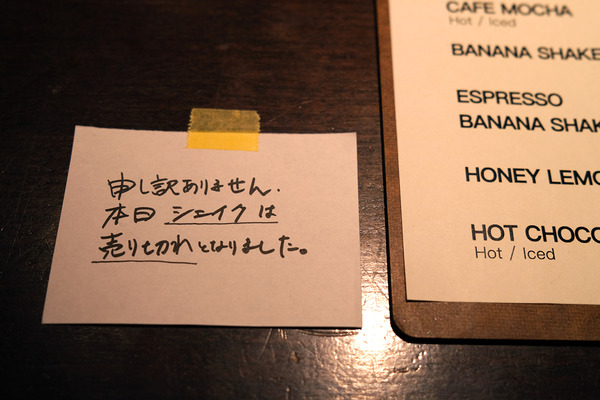 申し訳ありません.
本日 シェイクは
売り切れとなりました。
CAFE MOCHA
Hot / Iced
BANANA SHAKE
ESPRESSO
BANANA SHAK
HONEY LEMO
HOT CHOCO
Hot / Iced